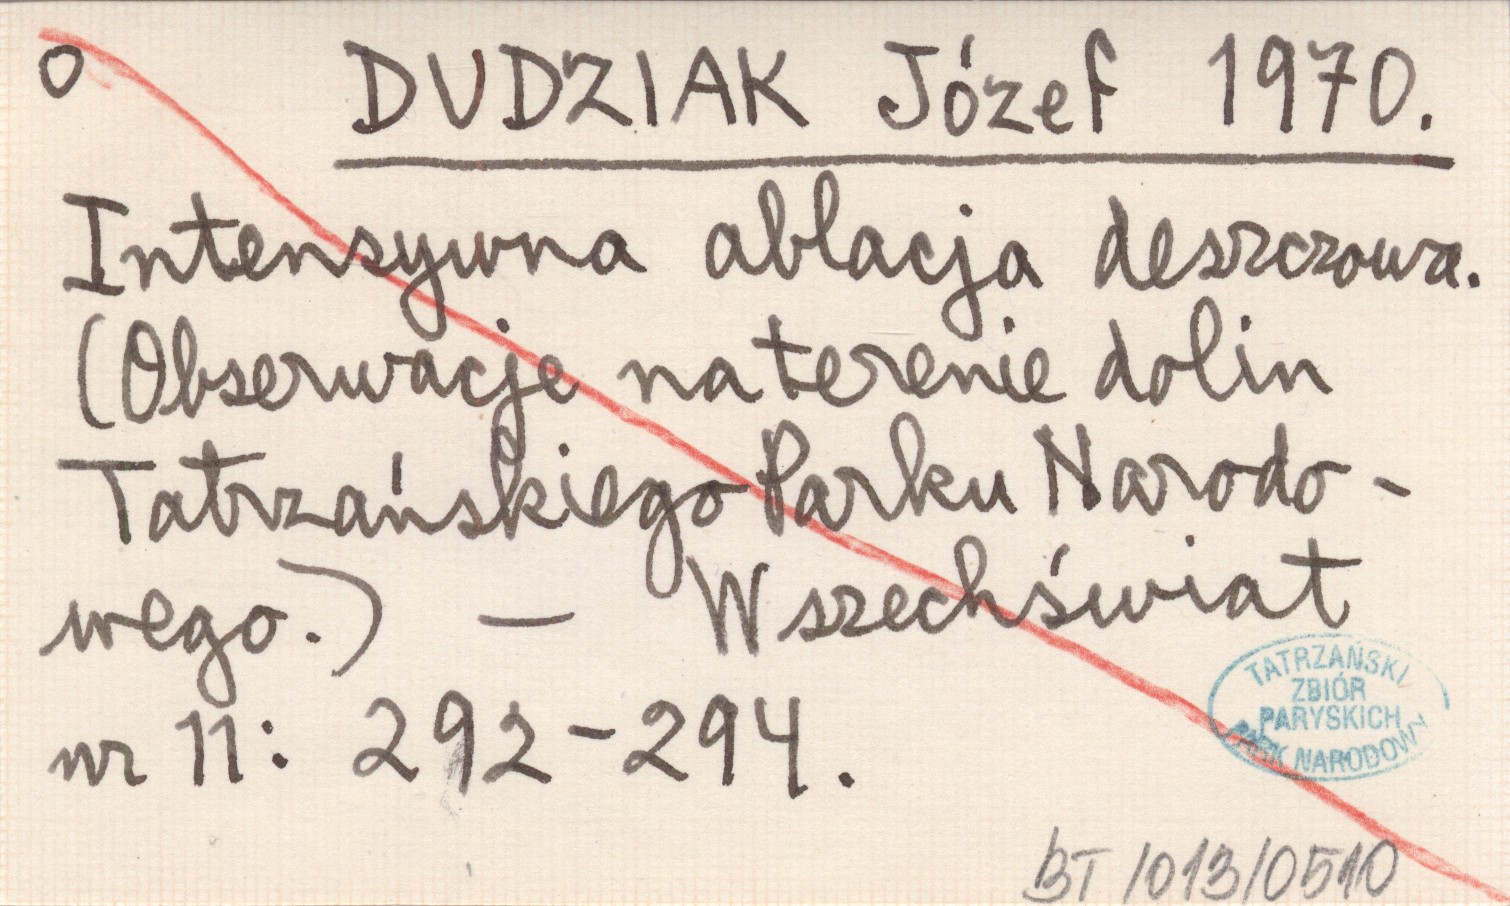 O DUDZIAK Józef 1970.
Intensywna ablacja deszczowa.
(Obserwacje na terenie dolin
Tatrzańskiego Parku Narodo-
wego.) — Wszechświat
nr 11: 292-294.
TATRZAŃSKI
ZBIÓR
PARYSKICH
PARK NARODOWY
BT/013/0510